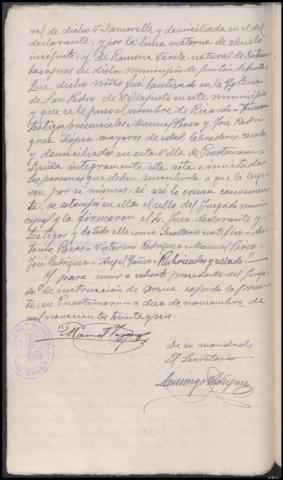 ral de dicho Vilamorelle y domiciliada en el del
declarante; y por la linea materna de abuelo
incógnito, y de Ramona Varela natural de
en dicho municipio de
Que dicho niño fué bautizado en la Iglesia
de San Pedro de en este municipio
y que se le puso el nombre de Ricardo. Fueron
testigos presenciales Manuel Pérez y José Rodri-
guez López, mayores de edad, labradores, casados
y domiciliados en esta Villa de Puertomarin.
Leida integramente esta acta e invitadas
las personas que deben suscribirla a que la leye-
ran por si mismas, si así lo creían conveniente,
se estampó en ella el sello del Juzgado muni-
cipal y la firmaron el Sr. Juez, declarante y
testigos y de todo ello como Secretario certifico = An-
tonio = Victorino Rodriguez = Manuel Pérez =
José Rodriguez = Angel = Rubricados y sellado."
Y para unir a exhorto procedente del Juzga-
do de instrucción de expido la presen-
te, en Puertomarin a diez de noviembre de
mil novecientos treinta y seis.
Manuel
De su mandado
El Secretario
Domingo Rodriguez